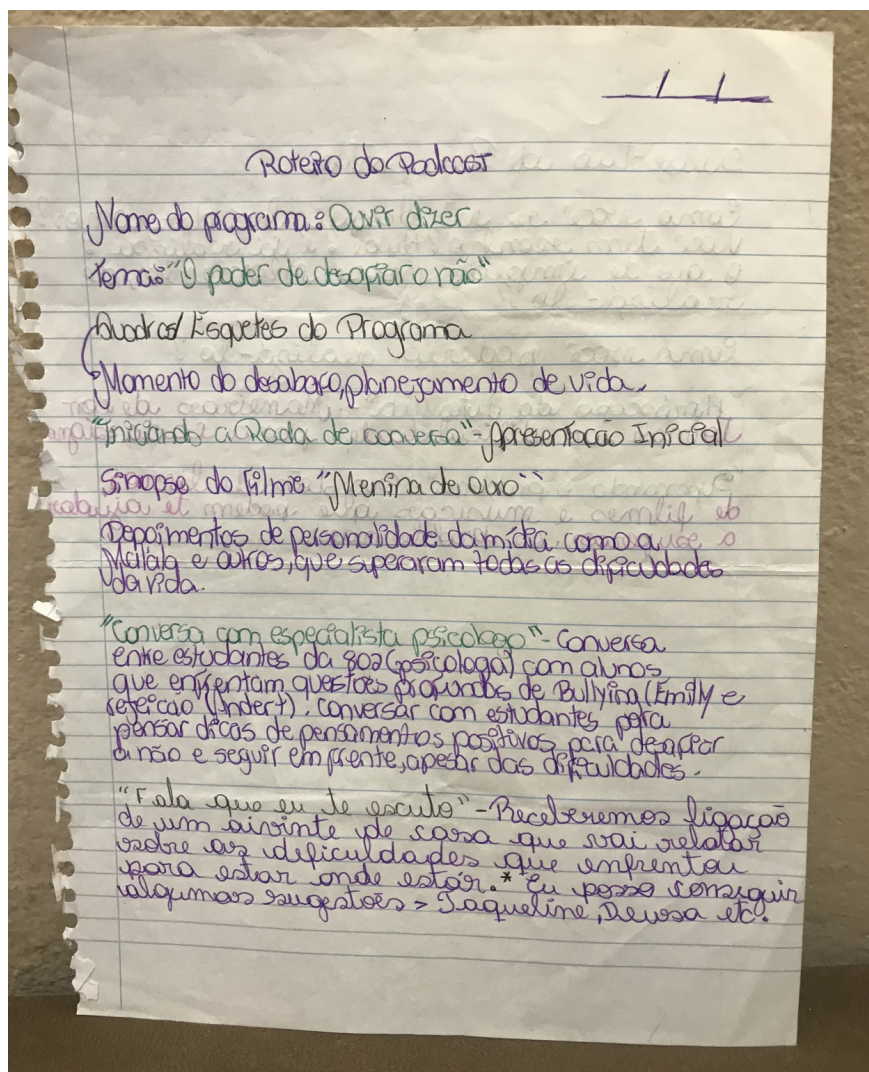 Roteiro do Podcast
Nome do programa: Ouvir dizer
Tema: "O poder de desafiar o não"
Quadros/Esquetes do Programa
Momento do desabafo, planejamento de vida.
"Iniciando a Roda de conversa" - Apresentacão Inicial
Sinopse do filme "Menina de ouro"
Depoimentos de personalidade da mídia como a
Malala e outros, que superaram todas as dificuldades
da vida.
"Conversa com especialista psicologo" - Conversa
entre estudantes da 802 (psicologa) com alunos
que enfrentam questões profundas de Bullying (Emily e
rejeicao (Undert). conversar com estudantes para
pensar dicas de pensamentos positivos para desafiar
o não e seguir em frente, apesar das dificuldades.
"Fala que eu te escuto" - Receberemos ligação
de um ouvinte de casa que vai relatar
sobre as dificuldades que enfrentou
para estar onde estár. * Eu posso conseguir
algumas sugestões > Jaqueline, Deusa etc.